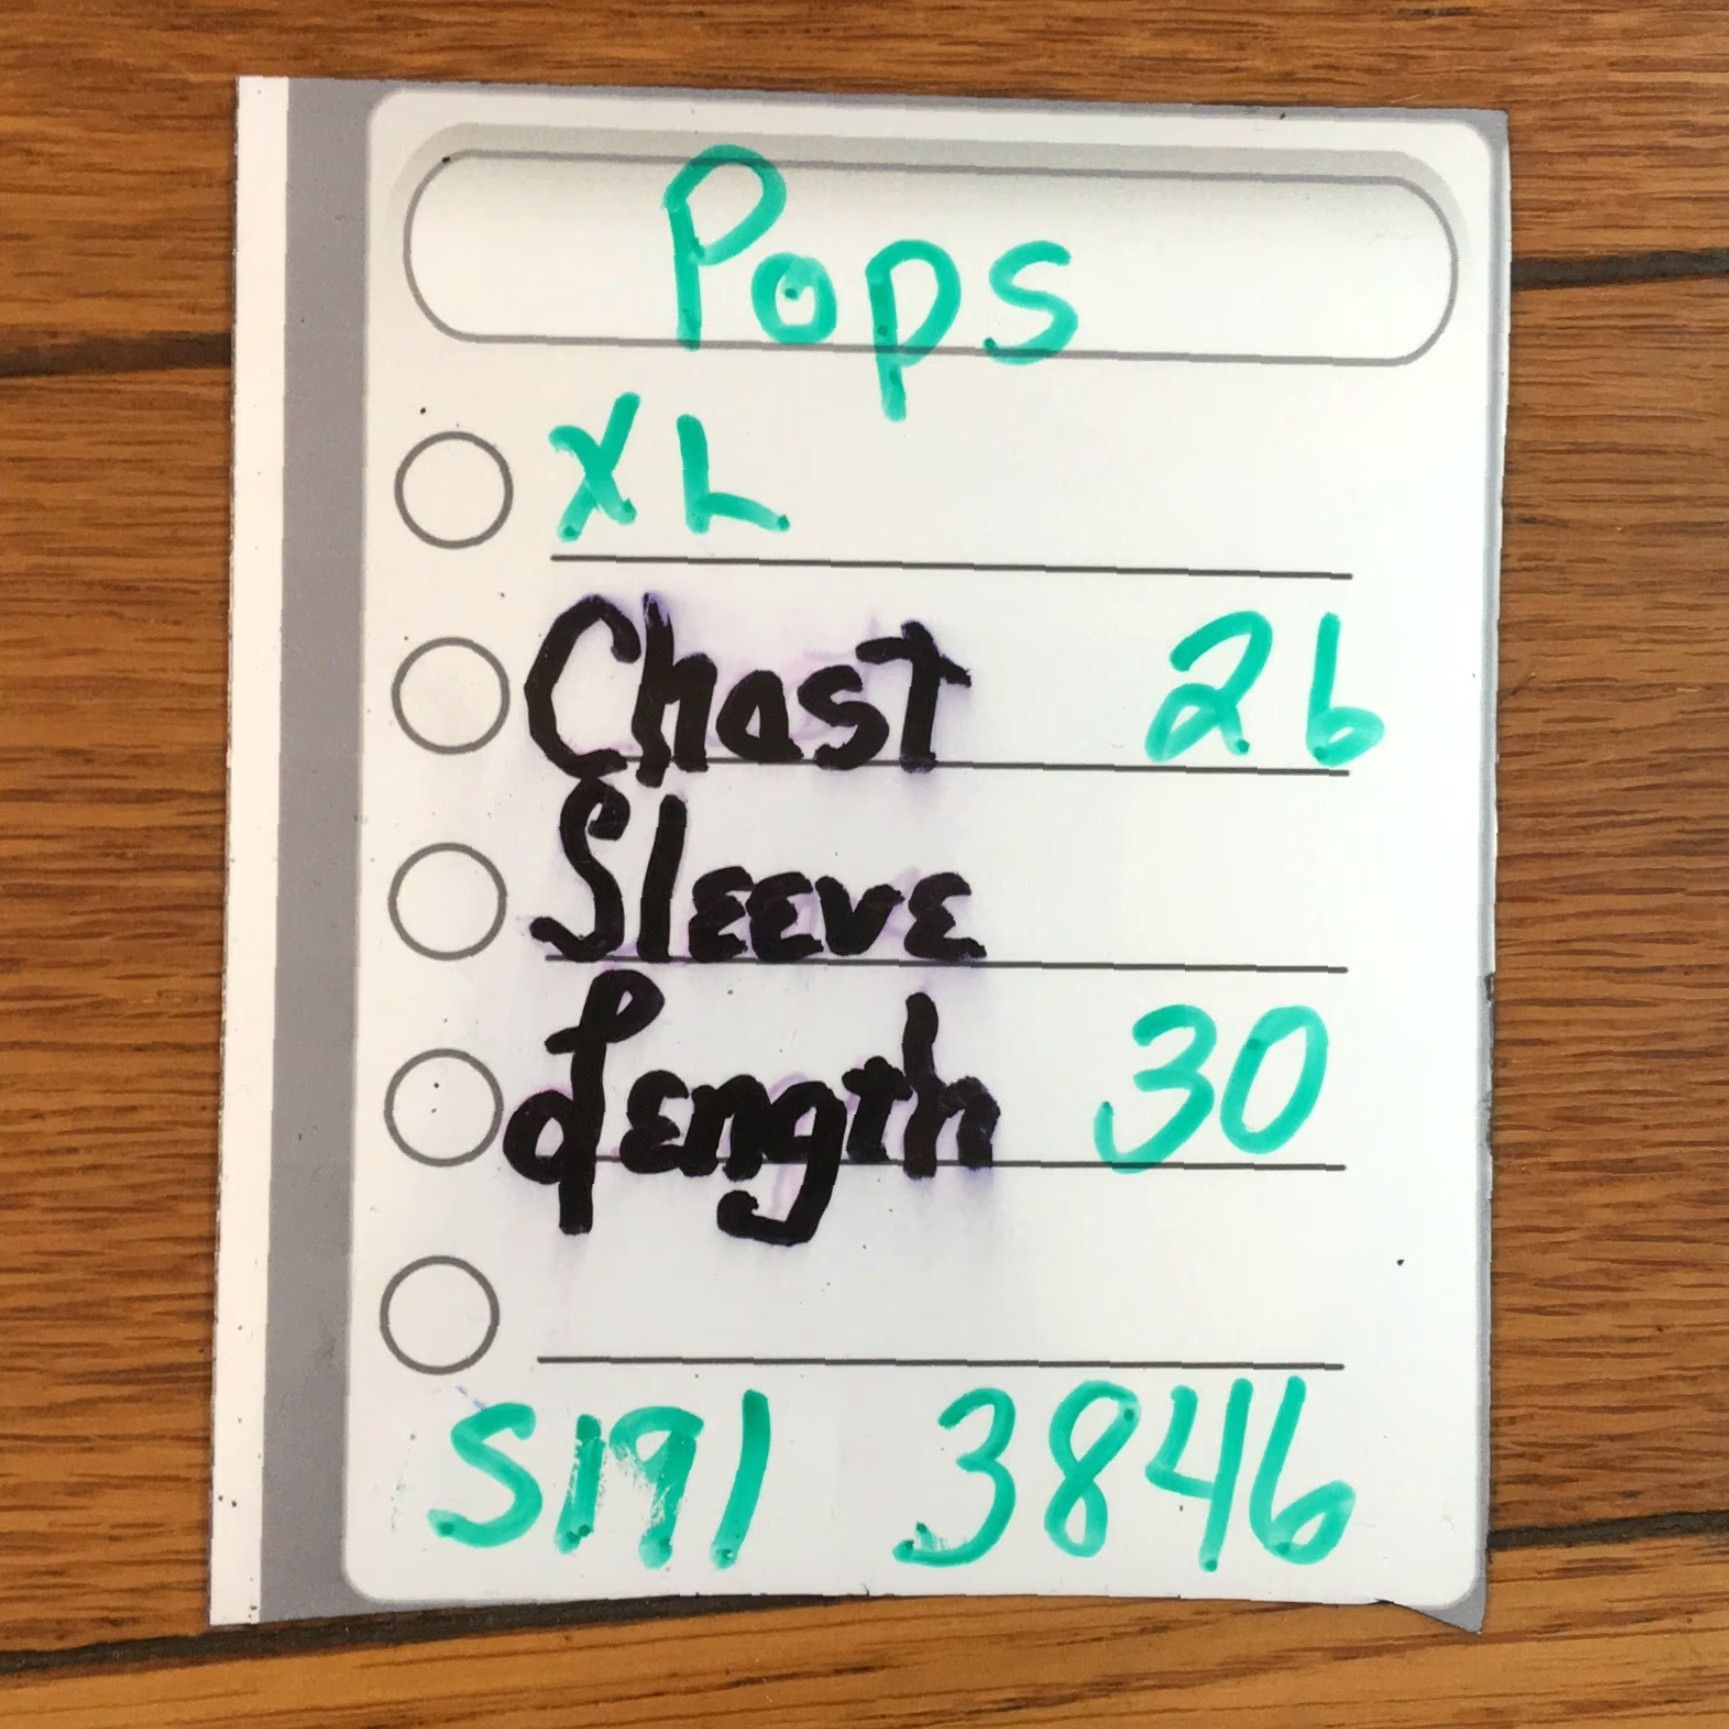 Pops
XL
Chast 26
Sleeve
Length 30
S191 3846